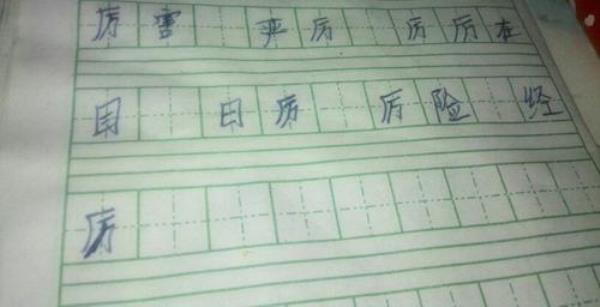 厉害 严厉 厉厉在
目 日厉 厉险 经
厉